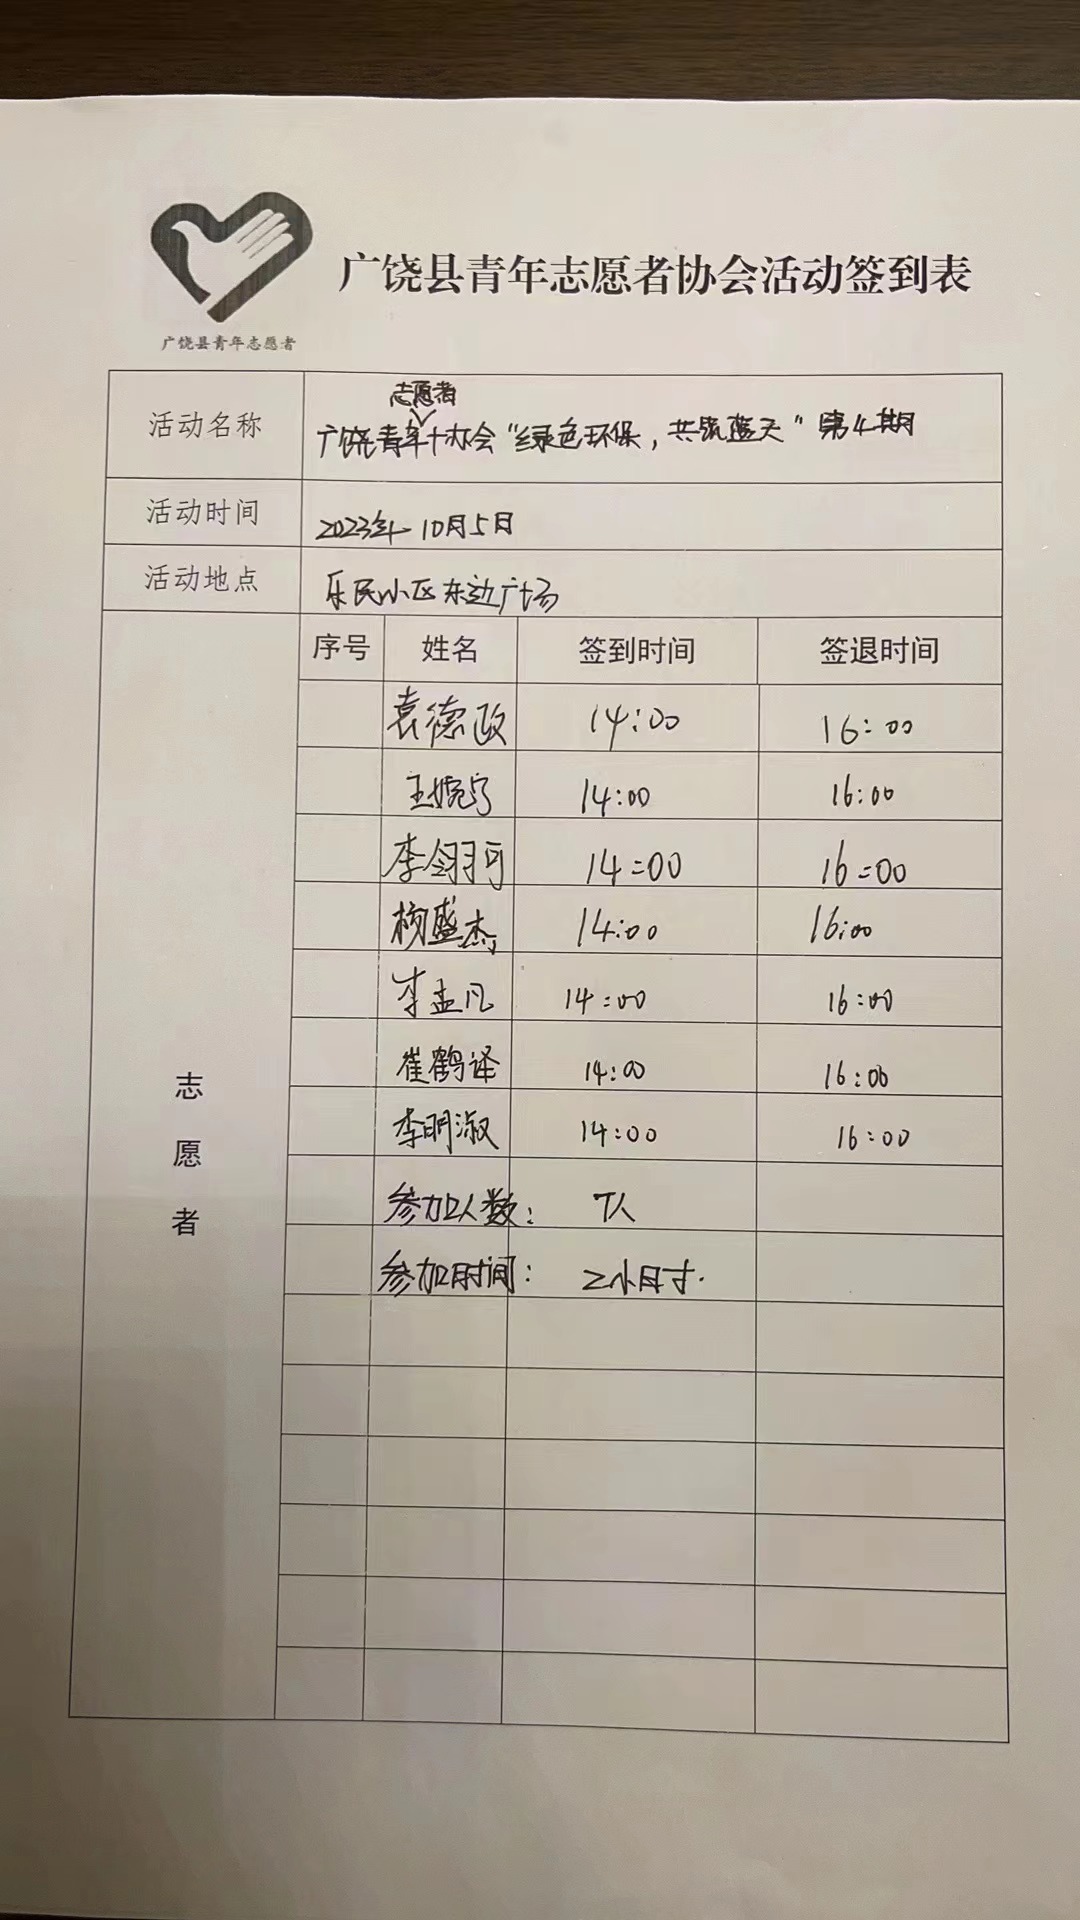 广饶县青年志愿者协会活动签到表
广饶县青年志愿者
活动名称 广饶青年志愿者协会“绿色环保，共筑蓝天”第4期
活动时间 2023年10月5日
活动地点 乐民小区东边广场
序号 姓名 签到时间 签退时间
袁德政 14:00 16:00
王婉宁 14:00 16:00
李翎羽可 14:00 16:00
杨盛杰 14:00 16:00
李孟凡 14:00 16:00
崔鹤译 14:00 16:00
李明淑 14:00 16:00
参加人数： 7人
参加时间： 2小时.
志
愿
者